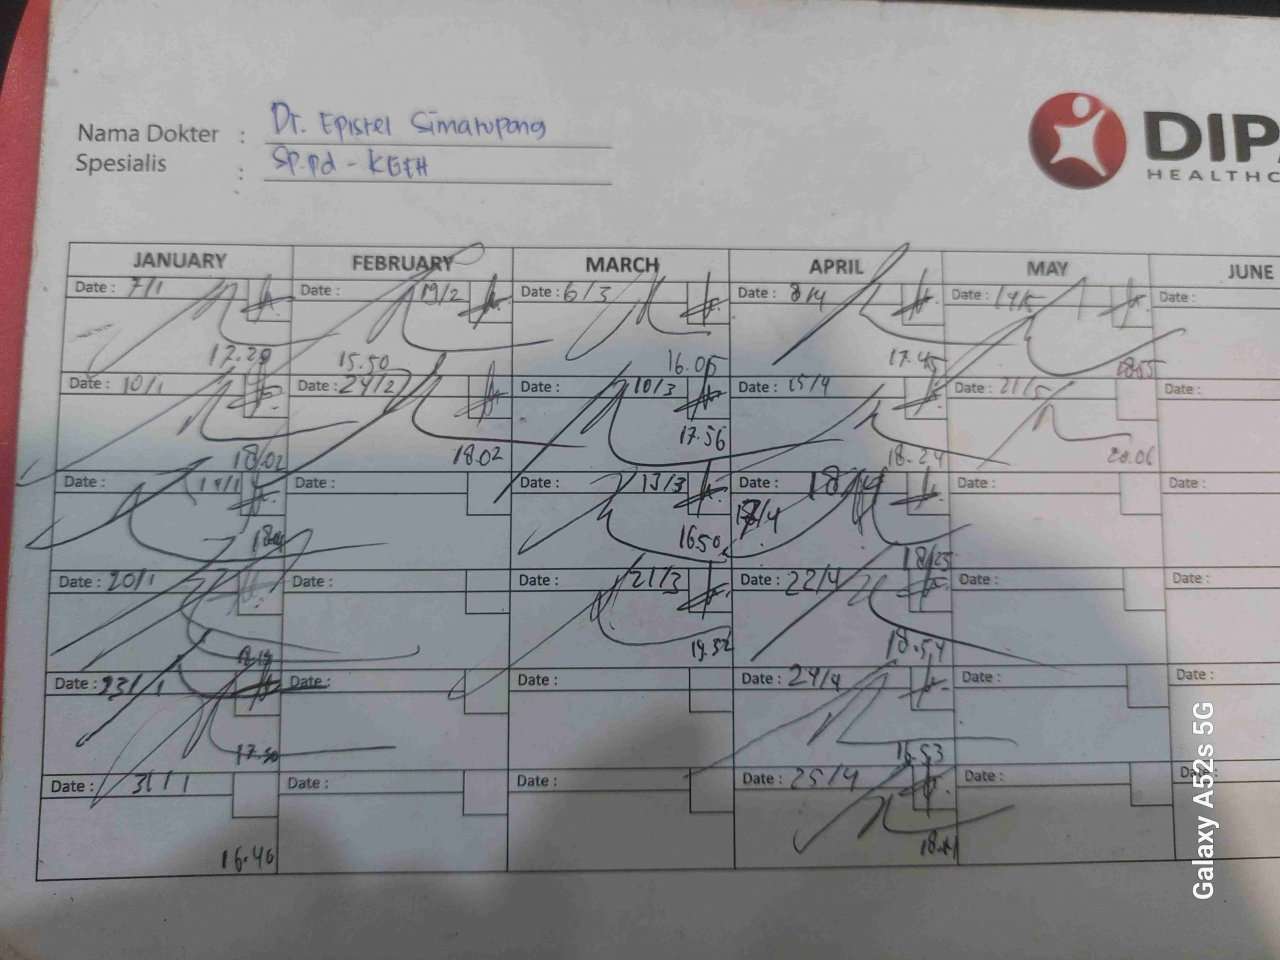 Nama Dokter : Dr. Epistel Simatupang
Spesialis : Sp.pd - KGEH
DIPA
HEALTHC
JANUARY FEBRUARY MARCH APRIL MAY JUNE
Date : 7/1 Date : 19/2 Date : 6/3 Date : 8/4 Date : 14/5 Date :
17.20 15.50 16.05 17.45 18.55
Date : 10/1 Date : 24/2 Date : 10/3 Date : 15/4 Date : 21/5 Date :
18.02 18.02 17.56 18.24 20.06
Date : Date : Date : 13/3 Date : 18/4 Date : Date :
17/4
16.50 18.25
Date : 20/1 Date : Date : 21/3 Date : 22/4 Date : Date :
19.32 18.54
Date : 23/1 Date : Date : Date : 24/4 Date : Date :
17.30 16.53
Date : 31/1 Date : Date : Date : 25/4 Date : Date :
16.40 18.41
Galaxy A52s 5G